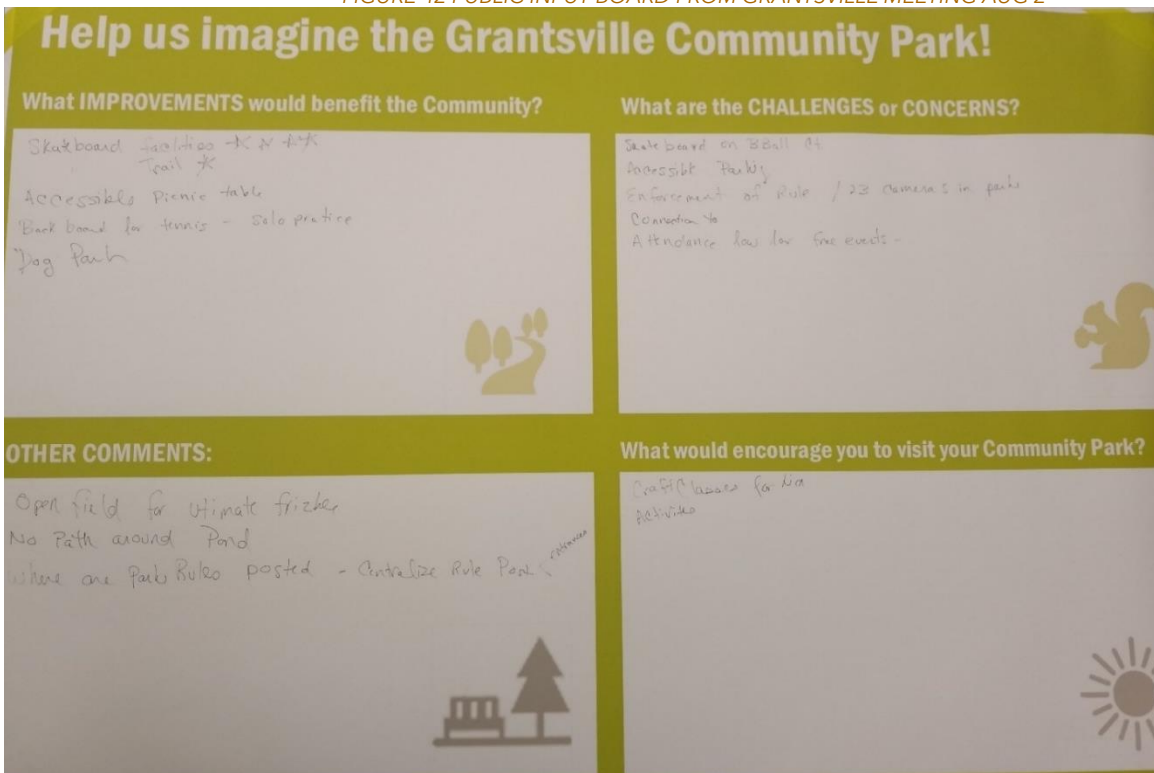 FIGURE 42 PUBLIC INPUT BOARD FROM GRANTSVILLE MEETING AUG 2
Help us imagine the Grantsville Community Park!
What IMPROVEMENTS would benefit the Community?
Skateboard facilities
Trail
Accessible Picnic table
Back board for tennis - Solo pratice
Dog Park
What are the CHALLENGES or CONCERNS?
Skateboard on BBall Ct
Accessible Parking
Enforcement of Rule / 23 cameras in parks
Connection to
Attendance low for free events -
OTHER COMMENTS:
Open field for Utimate
No Path around Pond
Where are Parks Rules posted - Centralize Rule
What would encourage you to visit your Community Park?
Craft Classes for
Activities